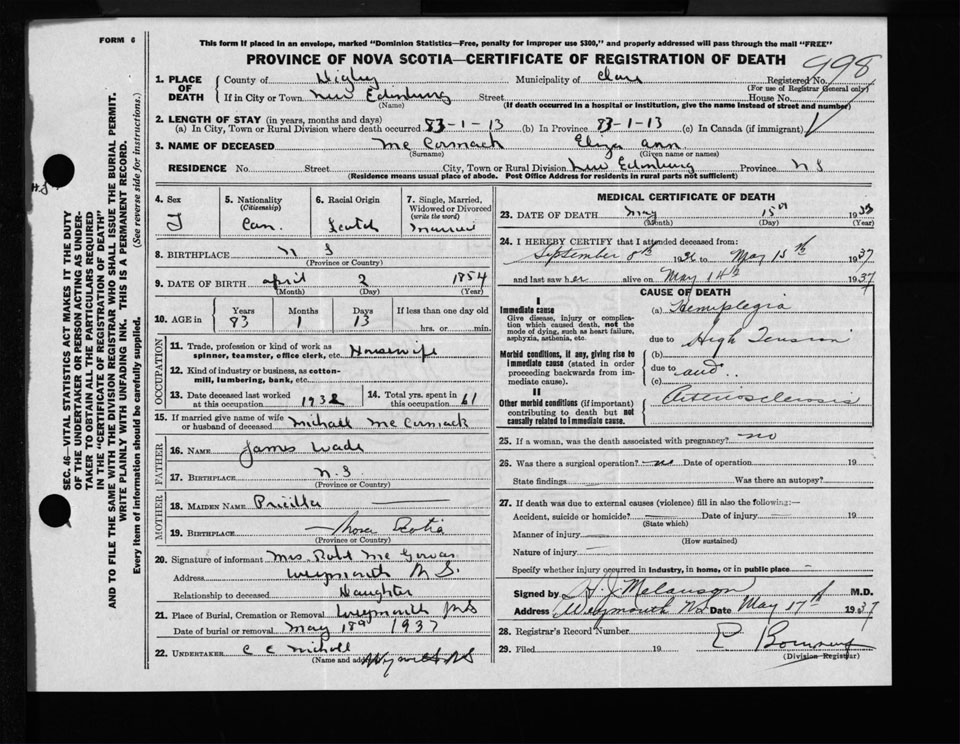 FORM 6
This form if placed in an envelope, marked "Dominion Statistics—Free, penalty for improper use $300," and properly addressed will pass through the mail "FREE"
PROVINCE OF NOVA SCOTIA—CERTIFICATE OF REGISTRATION OF DEATH
998
1. PLACE OF DEATH County of Digby Municipality of Clare Registered No.
(For use of Registrar General only)
If in City or Town New Edinburg Street House No.
(Name) (If death occurred in a hospital or institution, give the name instead of street and number)
2. LENGTH OF STAY (in years, months and days)
(a) In City, Town or Rural Division where death occurred 83-1-13 (b) In Province 83-1-13 (c) In Canada (if immigrant)
3. NAME OF DECEASED McCormack Eliza Ann
(Surname) (Given name or names)
RESIDENCE No. Street City, Town or Rural Division New Edinburg Province N S
(Residence means usual place of abode. Post Office Address for residents in rural parts not sufficient)
4. Sex F
5. Nationality (Citizenship) Can.
6. Racial Origin Scotch
7. Single, Married, Widowed or Divorced (write the word) married
8. BIRTHPLACE N S
(Province or Country)
9. DATE OF BIRTH April 2 1854
(Month) (Day) (Year)
10. AGE in Years Months Days If less than one day old
83 1 13 hrs. or min.
OCCUPATION
11. Trade, profession or kind of work as spinner, teamster, office clerk, etc. Housewife
12. Kind of industry or business, as cotton-mill, lumbering, bank, etc.
13. Date deceased last worked at this occupation 1932
14. Total yrs. spent in this occupation 61
15. If married give name of wife or husband of deceased Michall McCormack
FATHER
16. NAME James Wade
17. BIRTHPLACE N.S
(Province or Country)
MOTHER
18. MAIDEN NAME Pricilla
19. BIRTHPLACE Nova Scotia
(Province or Country)
20. Signature of informant Mrs. Robt McGowan
Address Weymouth N S.
Relationship to deceased Daughter
21. Place of Burial, Cremation or Removal Weymouth N S
Date of burial or removal May 18th 1937
22. UNDERTAKER C C Nicholl
(Name and address) Weymouth N S
MEDICAL CERTIFICATE OF DEATH
23. DATE OF DEATH May 15th 193
(Month) (Day) (Year)
24. I HEREBY CERTIFY that I attended deceased from:
September 8th 1936 to May 15th 1937
and last saw her alive on May 14th 1937
CAUSE OF DEATH
I
Immediate cause
Give disease, injury or complication which caused death, not the mode of dying, such as heart failure, asphyxia, asthenia, etc.
(a) Hemiplegia
due to High Tension
Morbid conditions, if any, giving rise to immediate cause (stated in order proceeding backwards from immediate cause).
(b)
due to and
(c) Arteriosclerosis
II
Other morbid conditions (if important) contributing to death but not causally related to immediate cause.
25. If a woman, was the death associated with pregnancy? no
26. Was there a surgical operation? no Date of operation 19
State findings Was there an autopsy?
27. If death was due to external causes (violence) fill in also the following:—
Accident, suicide or homicide? Date of injury 19
(State which)
Manner of injury
(How sustained)
Nature of injury
Specify whether injury occurred in industry, in home, or in public place
Signed by H. J. Melanson M.D.
Address Weymouth N.S. Date May 17th 1937
28. Registrar's Record Number
29. Filed 19
(Division Registrar)
SEC. 46—VITAL STATISTICS ACT MAKES IT THE DUTY
OF THE UNDERTAKER OR PERSON ACTING AS UNDERTAKER TO OBTAIN ALL THE PARTICULARS REQUIRED
IN THE "CERTIFICATE OF REGISTRATION OF DEATH"
AND TO FILE THE SAME WITH THE DIVISION REGISTRAR WHO SHALL ISSUE THE BURIAL PERMIT.
WRITE PLAINLY WITH UNFADING INK. THIS IS A PERMANENT RECORD.
Every item of information should be carefully supplied. (See reverse side for instructions.)